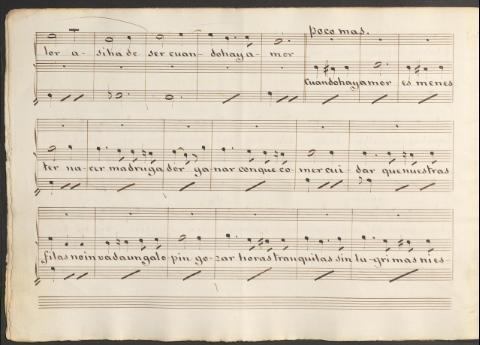 poco mas.
lor a- si ha de ser cuan- do hay a- mor
cuando hay amor es menes
ter na-cer madruga dor ga nar con que co- mer cui dar que nuestras
filas no in vada un galo pin go- zar horas tranquilas sin lagri mas ni es-